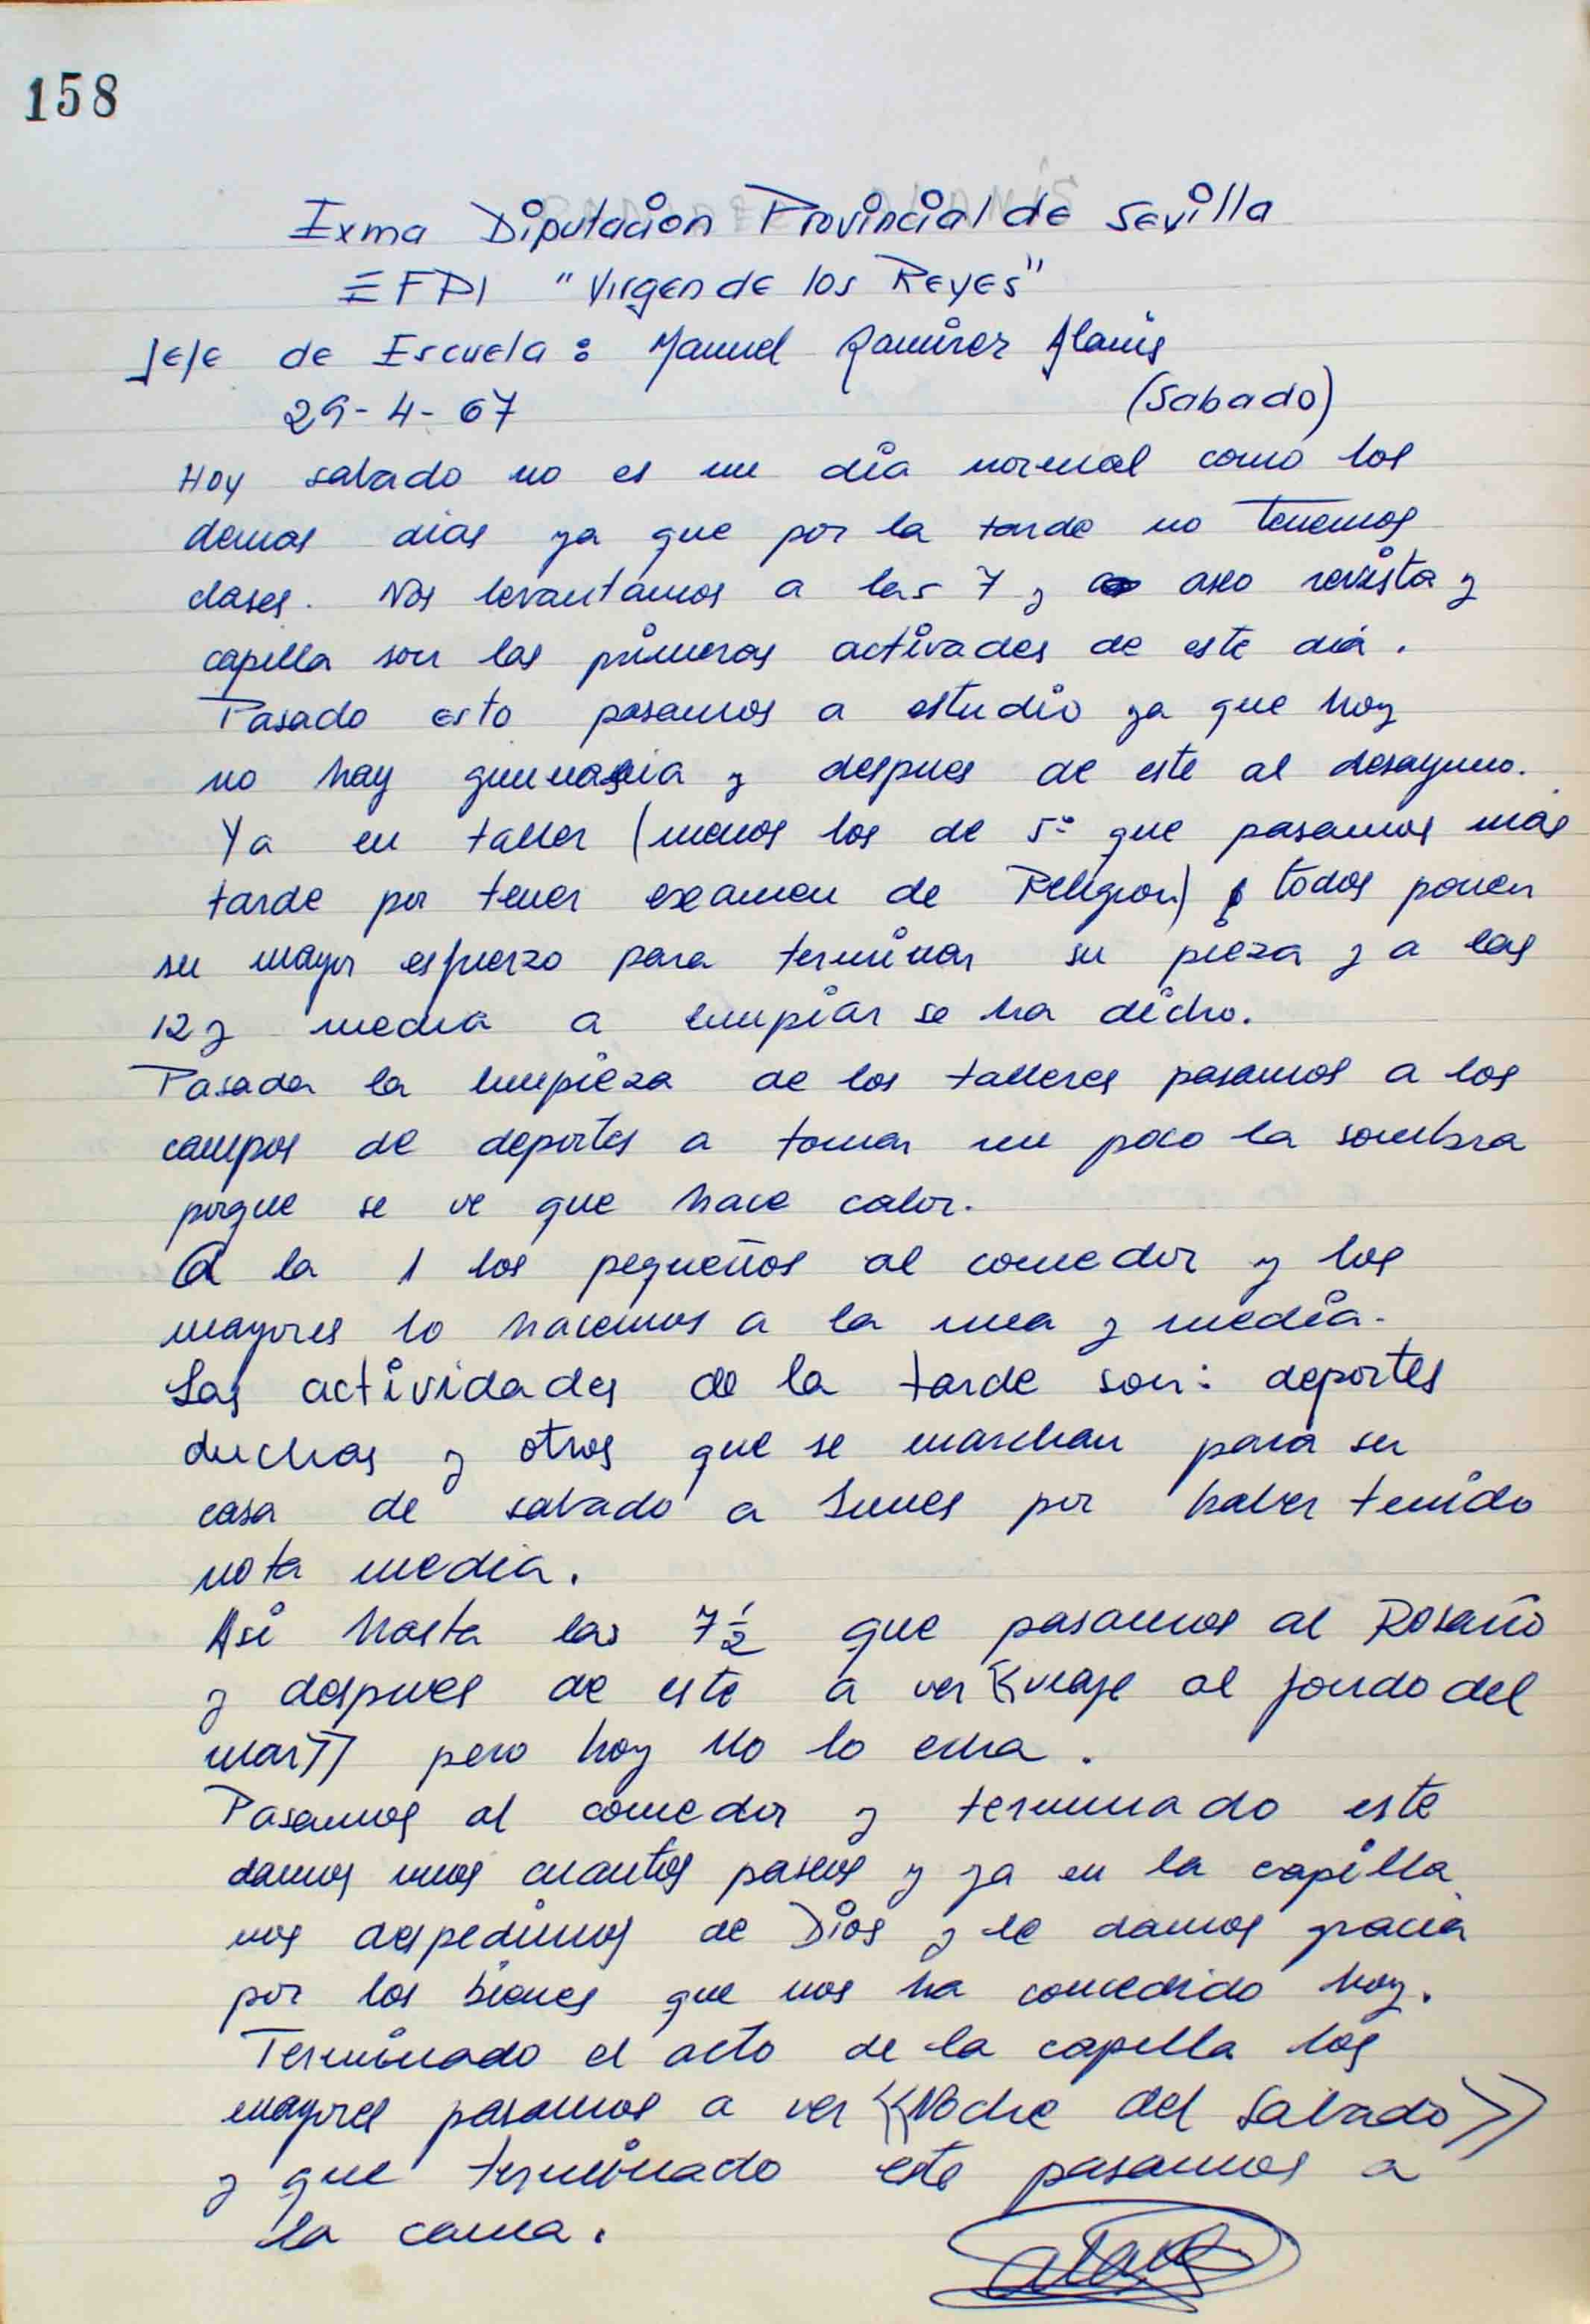 158
Exma Diputacion Provincial de Sevilla
EFPI "Virgen de los Reyes"
Jefe de Escuela: Manuel Ramirez Alanis
29-4-67 (Sabado)
Hoy sabado no es un dia normal como los
demas dias ya que por la tarde no tenemos
clases. Nos levantamos a las 7 y aseo revista y
capilla son las primeras activades de este dia.
Pasado esto pasamos a estudio ya que hoy
no hay gimnasia y despues de este al desayuno.
Ya en taller (menos los de 5º que pasamos mas
tarde por tener examen de Religion) todos ponen
su mayor esfuerzo para terminar su pieza y a las
12 y media a limpiar se ha dicho.
Pasada la limpieza de los talleres pasamos a los
campos de deportes a tomar un poco la sombra
porque se ve que hace calor.
A la 1 los pequeños al comedor y los
mayores lo hacemos a la una y media.
Las actividades de la tarde son: deportes
duchas y otros que se marchan para su
casa de sabado a lunes por haber tenido
nota media.
Asi hasta las 7 1/2 que pasamos al Rosario
y despues de este a ver <<viaje al fondo del
mar>> pero hoy no lo echa.
Pasamos al comedor y terminado este
damos unos cuantos paseos y ya en la capilla
nos despedimos de Dios y le damos gracia
por los bienes que nos ha concedido hoy.
Terminado el acto de la capilla los
mayores pasamos a ver <<Noche del Sabado>>
y que terminado este pasamos a
la cama.